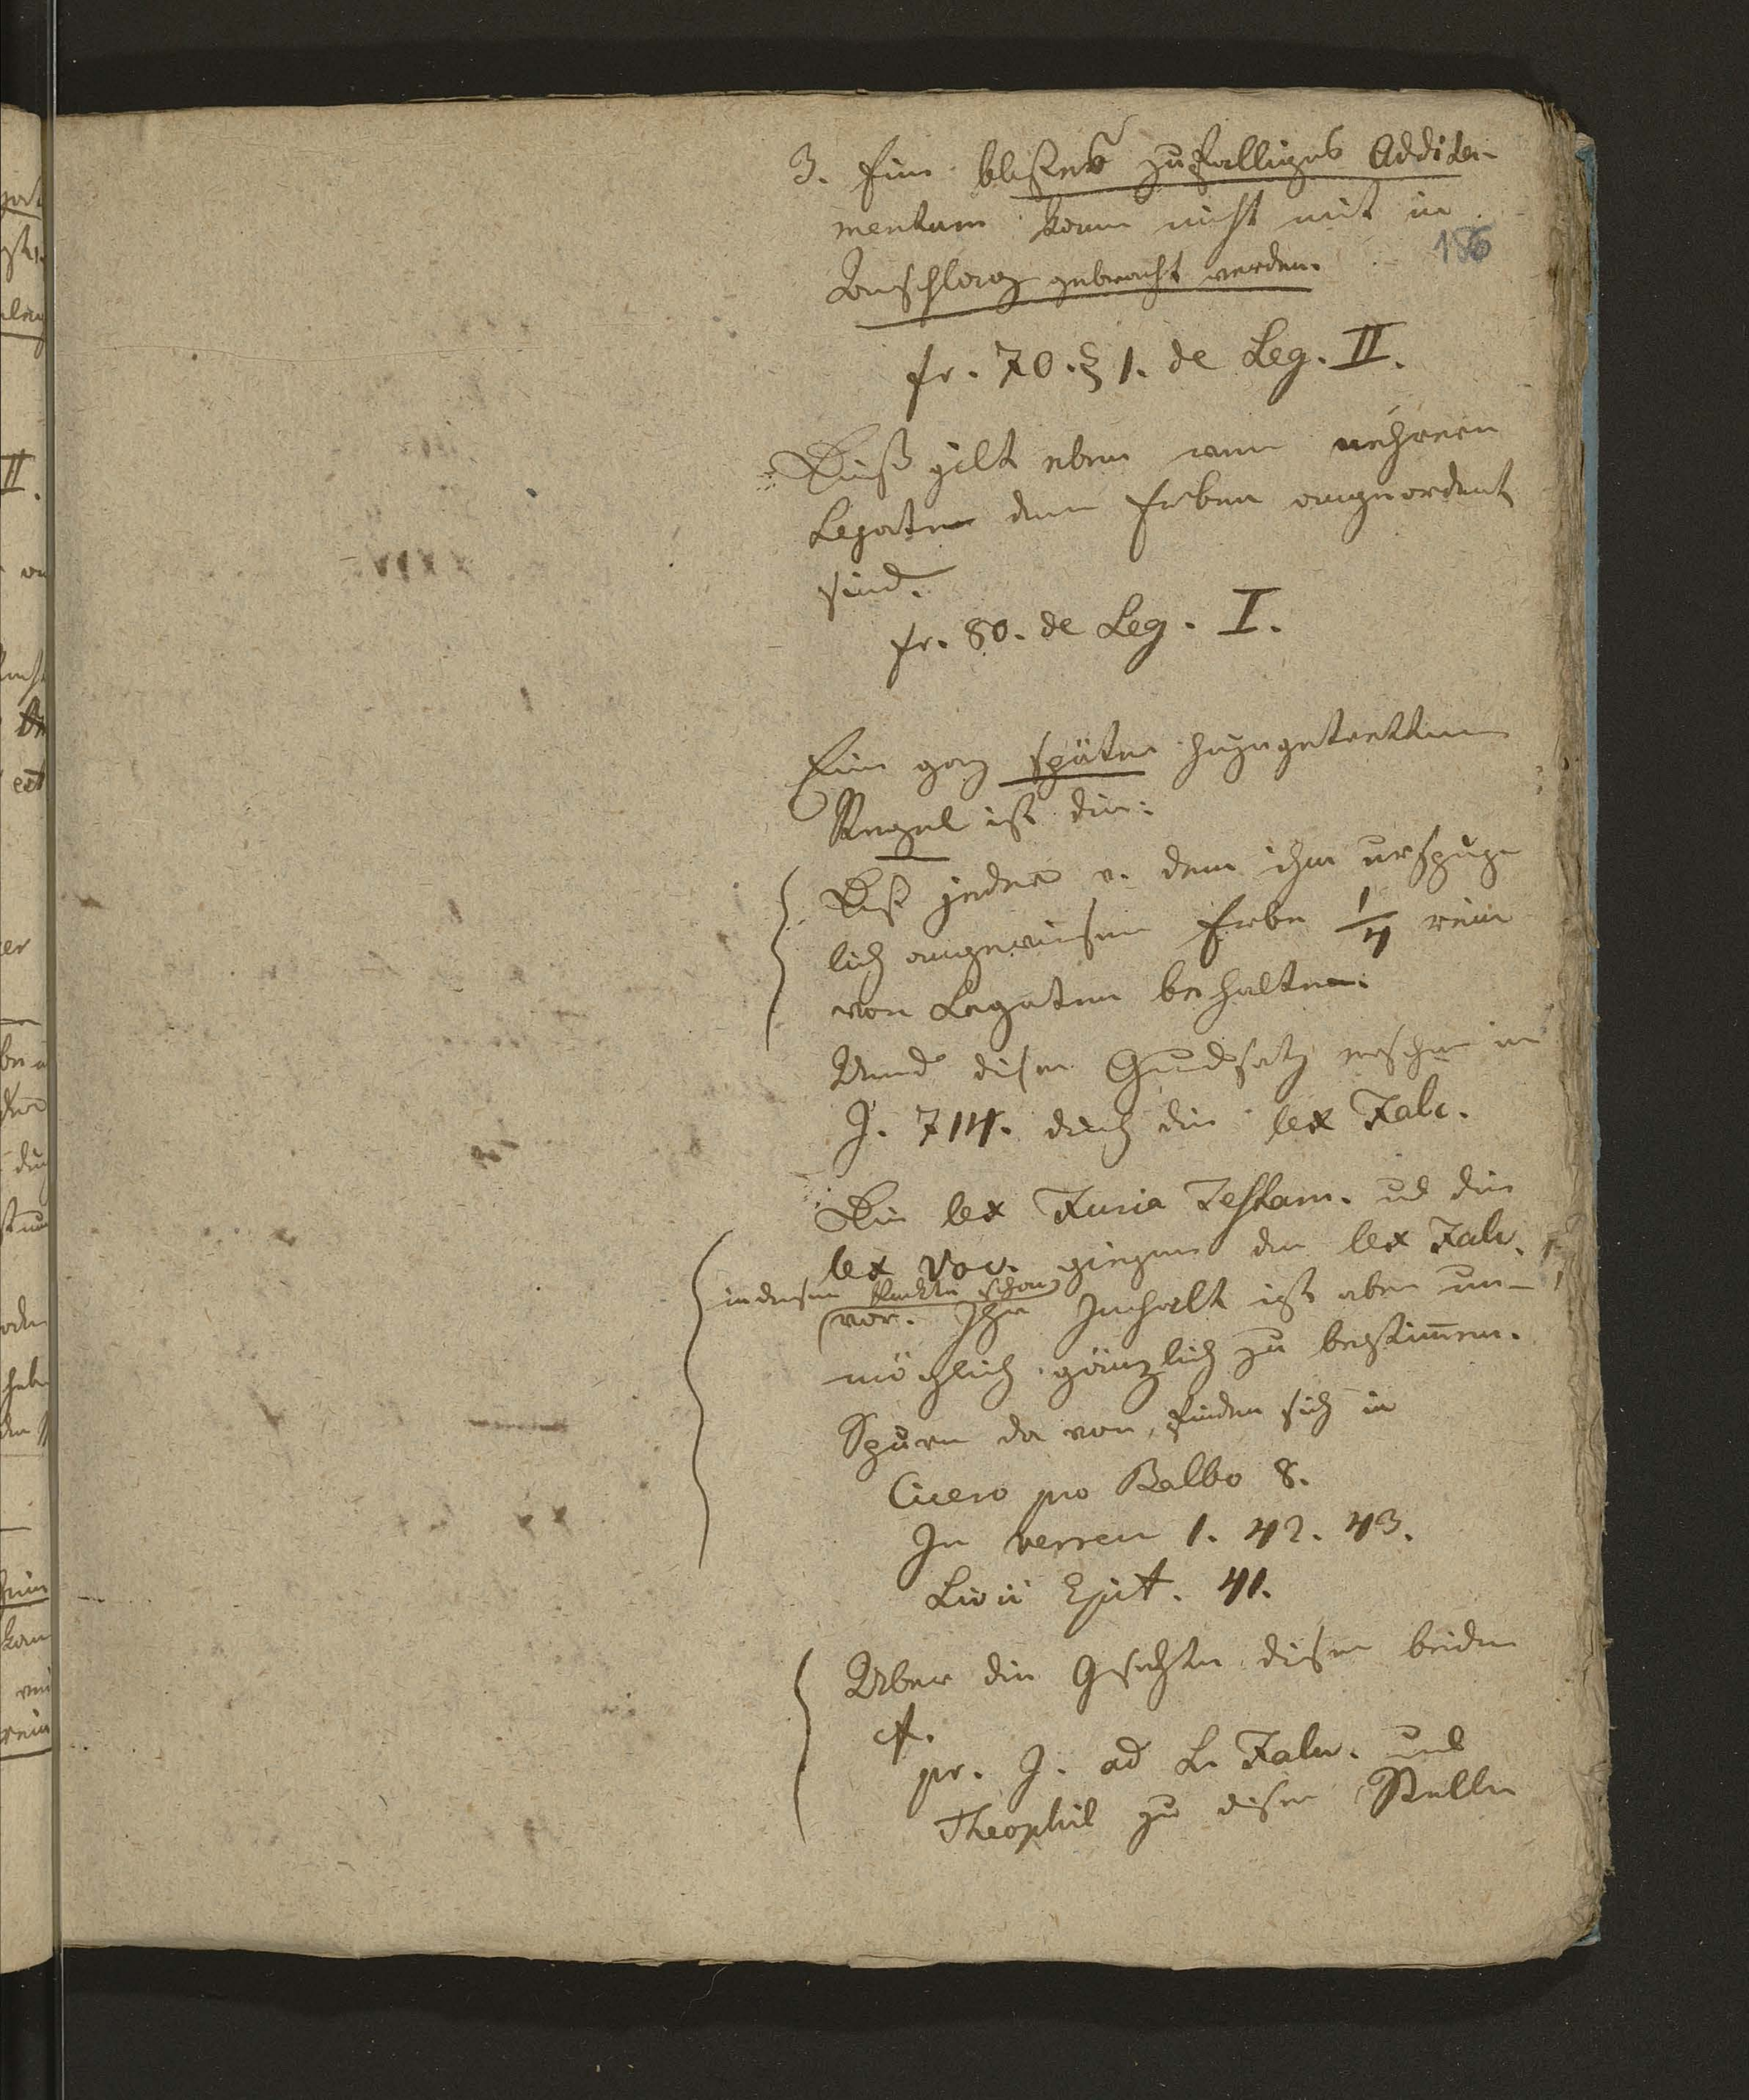 3. Ein bloßes zufälliges Addita-
mentum kann nicht mit in
Anschlag gebracht werden.
186
fr. 70. § 1. de Leg. II.
Dieß gilt eben wenn mehrere
Legate dem Erben angeordnet
sind.
fr. 80. de Leg. I.
Eine ganz späte hinzugetrettene
Regel ist die:
Daß jeder v. dem ihm ursprüng
lich angewiesenen Erbe 1/4 rein
von Legaten behalten.
Und dieser Grundsatz in
J. 714. durch die lex Falc.
Die lex Furia Testam. ud die
lex Voc. giengen der lex Falc.
in diesem Punkte schon
vor. Ihr Inhalt ist aber un-
möglich gänzlich zu bestim̅en.
Spuren da von, finden sich in
Cicero pro Balbo 8.
In verrem 1. 42. 43.
Livii Epit. 41.
Über die Geschichte dieser beiden
cf.
pr. J. ad L. Falc. und
Theophil zu dieser Stelle